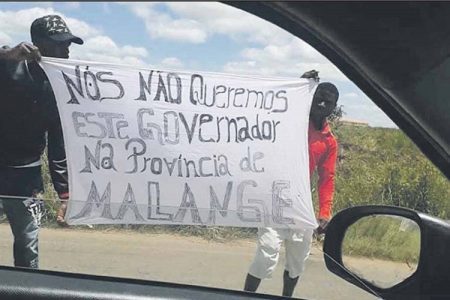 NÓS NÃO QUEREMOS
ESTE GOVERNADOR
NA PROVÍNCIA DE
MALANGE